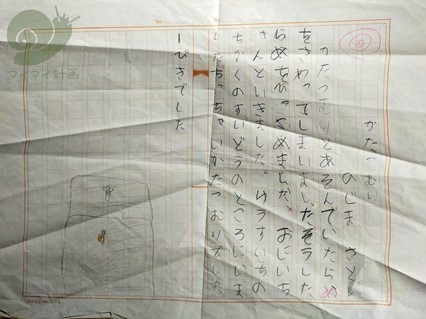 マイマイ計画
かたつむり
のじま さと
かたつむりとあそんでいたらめ
をさわってしまいました。そうした
らめをひっこめました。おじいち
ゃんといきました。ゆうすいちの
ちかくのすいどうのところにいま
したちっちゃいかたつむりでした
一ぴきでした